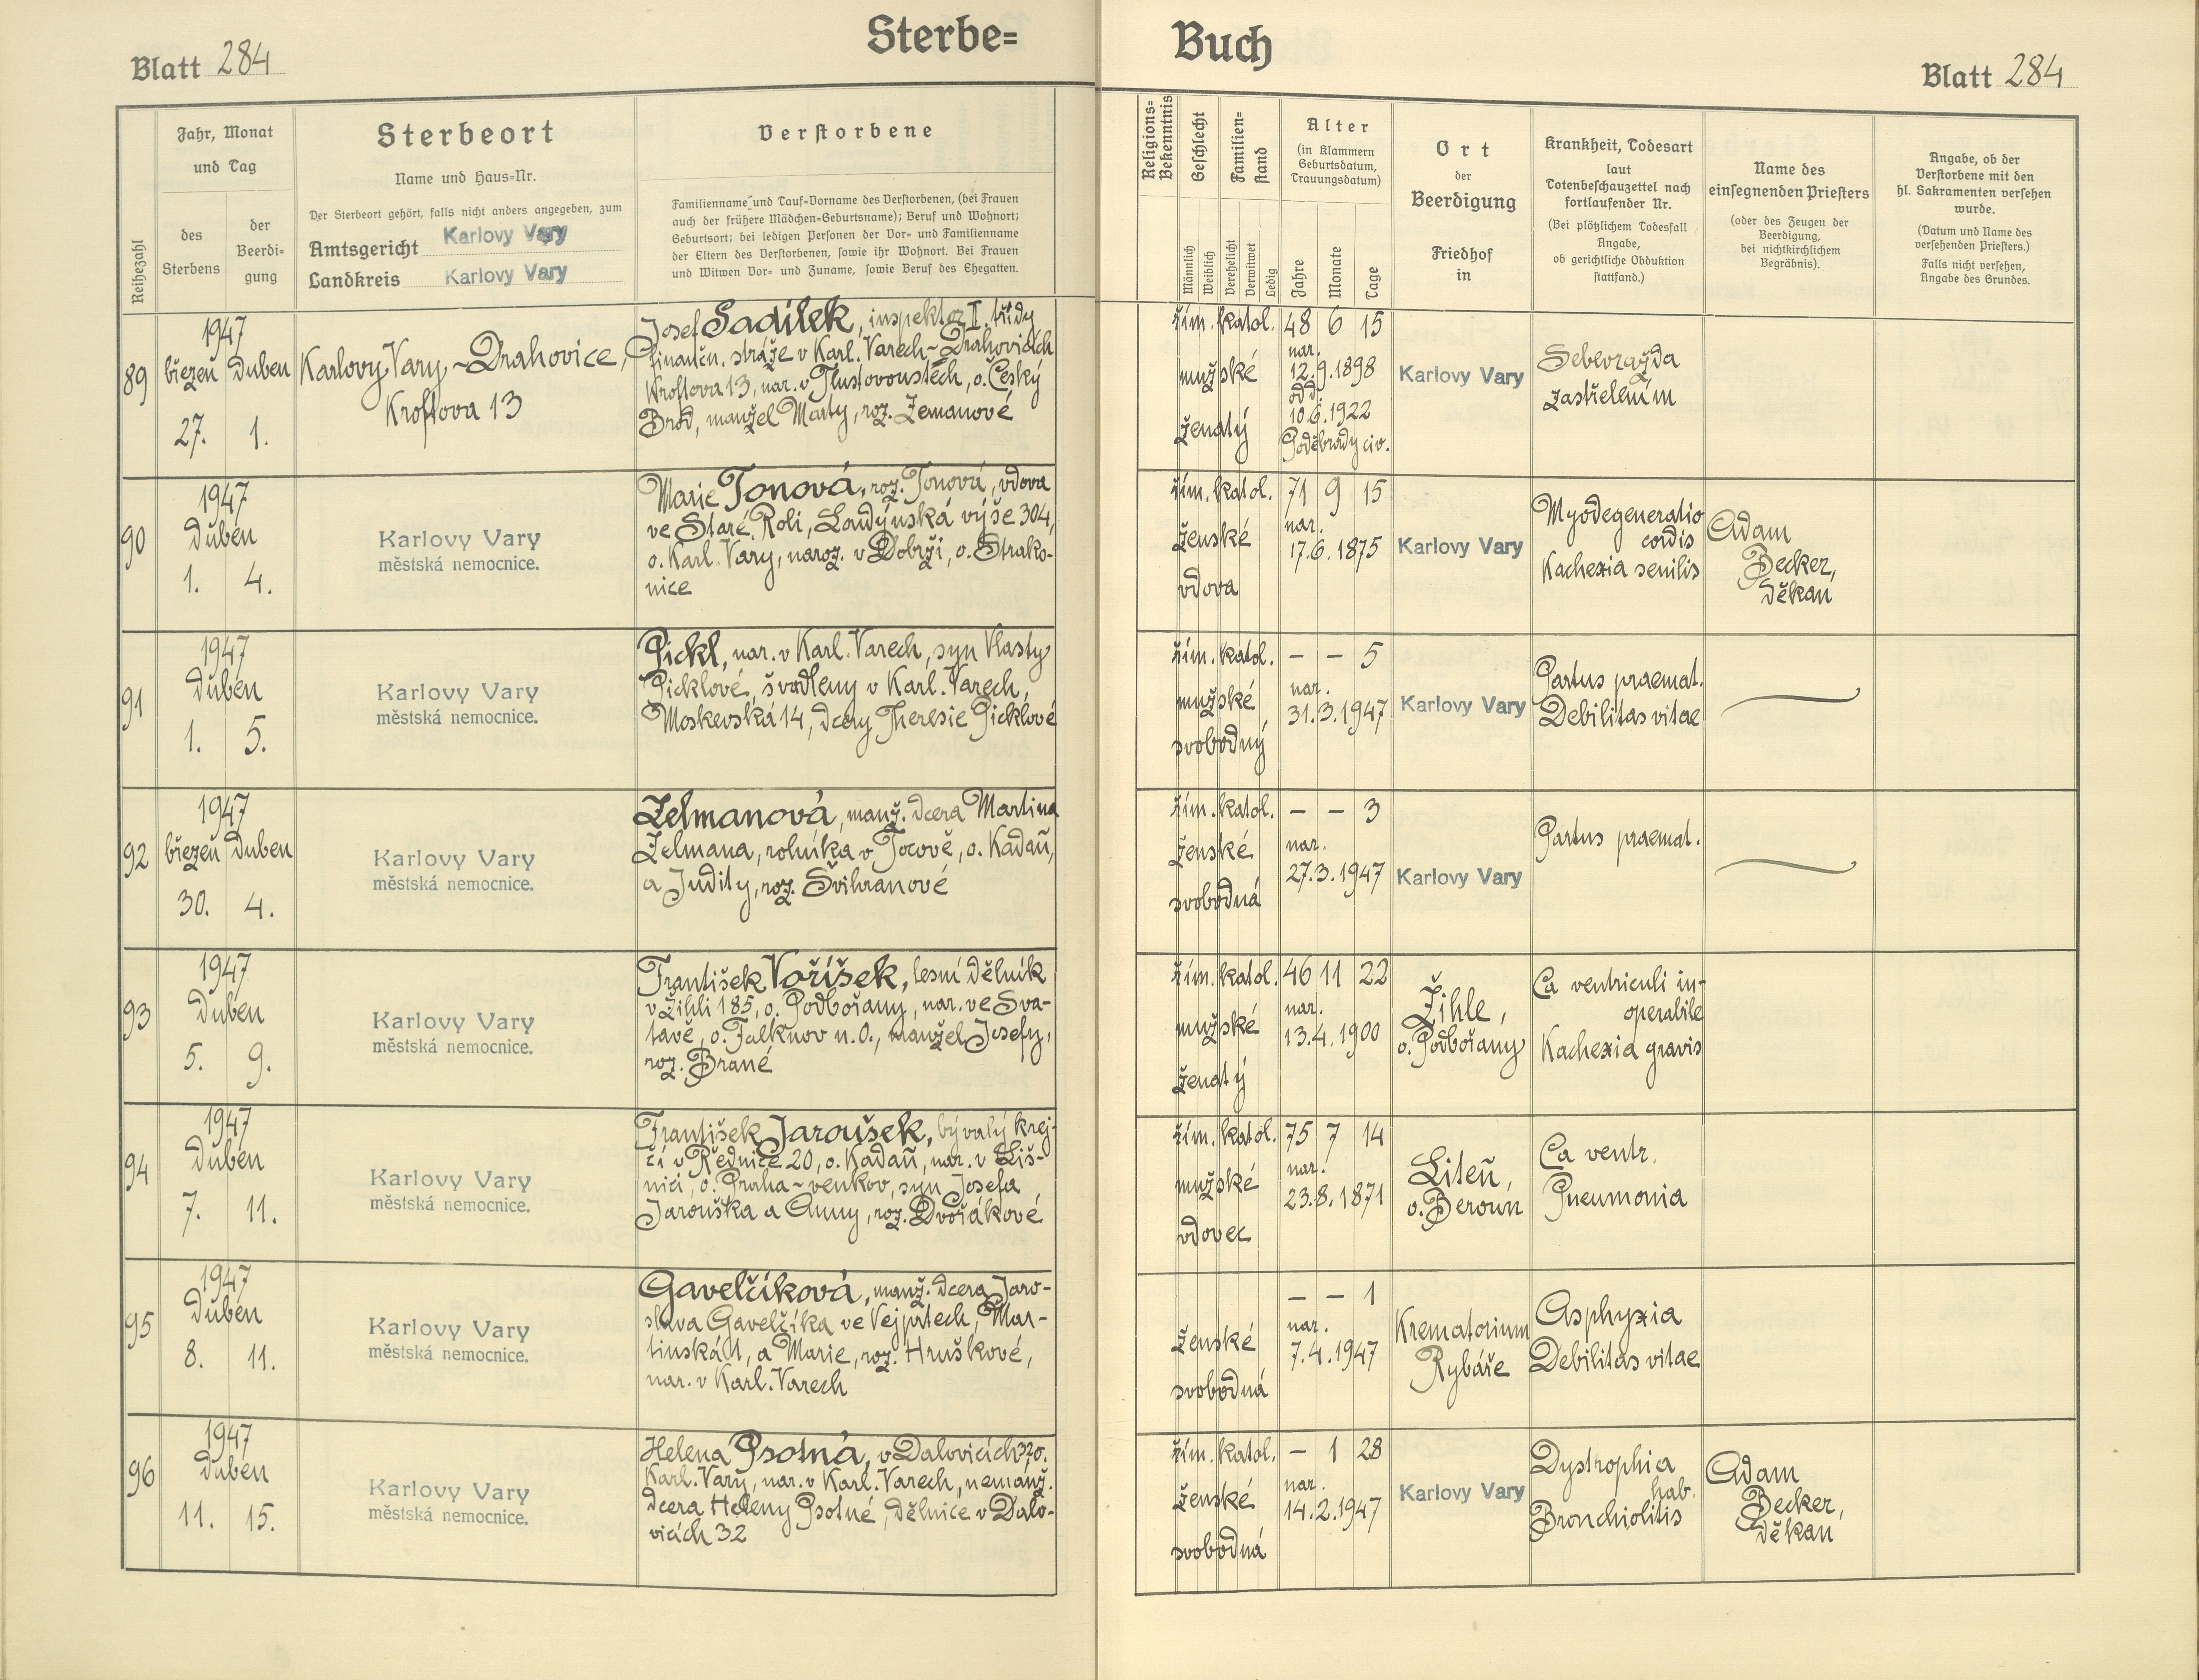 Sterbe= Buch
Blatt 284
Blatt 284
Reihezahl
Fahr, Monat
und Tag
des
Sterbens
der
Beerdi-
gung
Sterbeort
Name und Haus=Nr.
Der Sterbeort gehört, falls nicht anders angegeben, zum
Amtsgericht Karlovy Vary
Landkreis Karlovy Vary
Verstorbene
Familienname und Tauf=Vorname des Verstorbenen, (bei Frauen
auch der frühere Mädchen=Geburtsname); Beruf und Wohnort;
Geburtsort; bei ledigen Personen der Vor= und Familienname
der Eltern des Verstorbenen, sowie ihr Wohnort. Bei Frauen
und Witwen Vor= und Zuname, sowie Beruf des Ehegatten.
Religions=
Bekenntnis
Geschlecht
Männlich
Weiblich
Familien=
stand
Verehelicht
Verwitwet
Ledig
Alter
(in Klammern
Geburtsdatum,
Trauungsdatum)
Jahre
Monate
Tage
Ort
der
Beerdigung
Friedhof
in
Krankheit, Todesart
laut
Totenbeschauzettel nach
fortlaufender Nr.
(Bei plötzlichem Todesfall
Angabe,
ob gerichtliche Obduktion
stattfand.)
Name des
einsegnenden Priesters
(oder des Zeugen der
Beerdigung,
bei nichtkirchlichem
Begräbnis).
Angabe, ob der
Verstorbene mit den
hl. Sakramenten versehen
wurde.
(Datum und Name des
versehenden Priesters.)
Falls nicht versehen,
Angabe des Grundes.
89
1947
březen duben
27. 1.
Karlovy Vary - Drahovice,
Kroftova 13
Josef Sadílek, inspektor II. třídy
finančn. stráže v Karl. Varech - Drahovicích
Kroftova 13, nar. v Tlustovousích, o. Český
Brod, manžel Marty, roz. Zemanové
řím. katol.
mužské
ženatý
48 6 15
nar.
12.9.1898
odd.
10.6.1922
Poděbrady civ.
Karlovy Vary
Sebevražda
zastřelením
90
1947
duben
1. 4.
Karlovy Vary
městská nemocnice.
Marie Tonová, roz. Tonová, vdova
ve Staré Roli, Londýnská výše 304,
o. Karl. Vary, naroz. v Dobrši, o. Strako-
nice
řím. katol.
ženské
vdova
71 9 15
nar.
17.6.1875
Karlovy Vary
Myodegeneratio
cordis
Kachexia senilis
Adam
Becker,
děkan
91
1947
duben
1. 5.
Karlovy Vary
městská nemocnice.
Pickl, nar. v Karl. Varech, syn Vlasty
Picklové, švadleny v Karl. Varech,
Moskevská 14, dcery Theresie Picklové
řím. katol.
mužské
svobodný
- - 5
nar.
31.3.1947
Karlovy Vary
Partus praemat.
Debilitas vitae
92
1947
březen duben
30. 4.
Karlovy Vary
městská nemocnice.
Zelmanová, manž. dcera Martina
Zelmana, rolníka v Tocově, o. Kadaň,
a Judity, roz. Švihranové
řím. katol.
ženské
svobodná
- - 3
nar.
27.3.1947
Karlovy Vary
Partus praemat.
93
1947
duben
5. 9.
Karlovy Vary
městská nemocnice.
František Voříšek, lesní dělník
v Žihli 185, o. Podbořany, nar. ve Sva-
tavě, o. Falknov n. O., manžel Josefy,
roz. Brané
řím. katol.
mužské
ženatý
46 11 22
nar.
13.4.1900
Žihle,
o. Podbořany
Ca ventriculi in-
operabile
Kachexia gravis
94
1947
duben
7. 11.
Karlovy Vary
městská nemocnice.
František Jaroušek, bývalý krej-
čí v Rědnice 20, o. Kadaň, nar. v Liš-
nici, o. Praha-venkov, syn Josefa
Jarouška a Anny, roz. Dvořákové
řím. katol.
mužské
vdovec
75 7 14
nar.
23.8.1871
Liteň,
o. Beroun
Ca ventr.
Pneumonia
95
1947
duben
8. 11.
Karlovy Vary
městská nemocnice.
Gavelčíková, manž. dcera Jaro-
slava Gavelčíka ve Vejprtech, Mar-
tinská a Marie, roz. Hruškové,
nar. v Karl. Varech
ženské
svobodná
- - 1
nar.
7.4.1947
Krematorium
Rybáře
Asphyxia
Debilitas vitae
96
1947
duben
11. 15.
Karlovy Vary
městská nemocnice.
Helena Psotná, v Dalovicích 32 o.
Karl. Vary, nar. v Karl. Varech, nemanž.
dcera Heleny Psotné, dělnice v Dalo-
vicích 32
řím. katol.
ženské
svobodná
- 1 28
nar.
14.2.1947
Karlovy Vary
Dystrophia
hab.
Bronchiolitis
Adam
Becker,
děkan